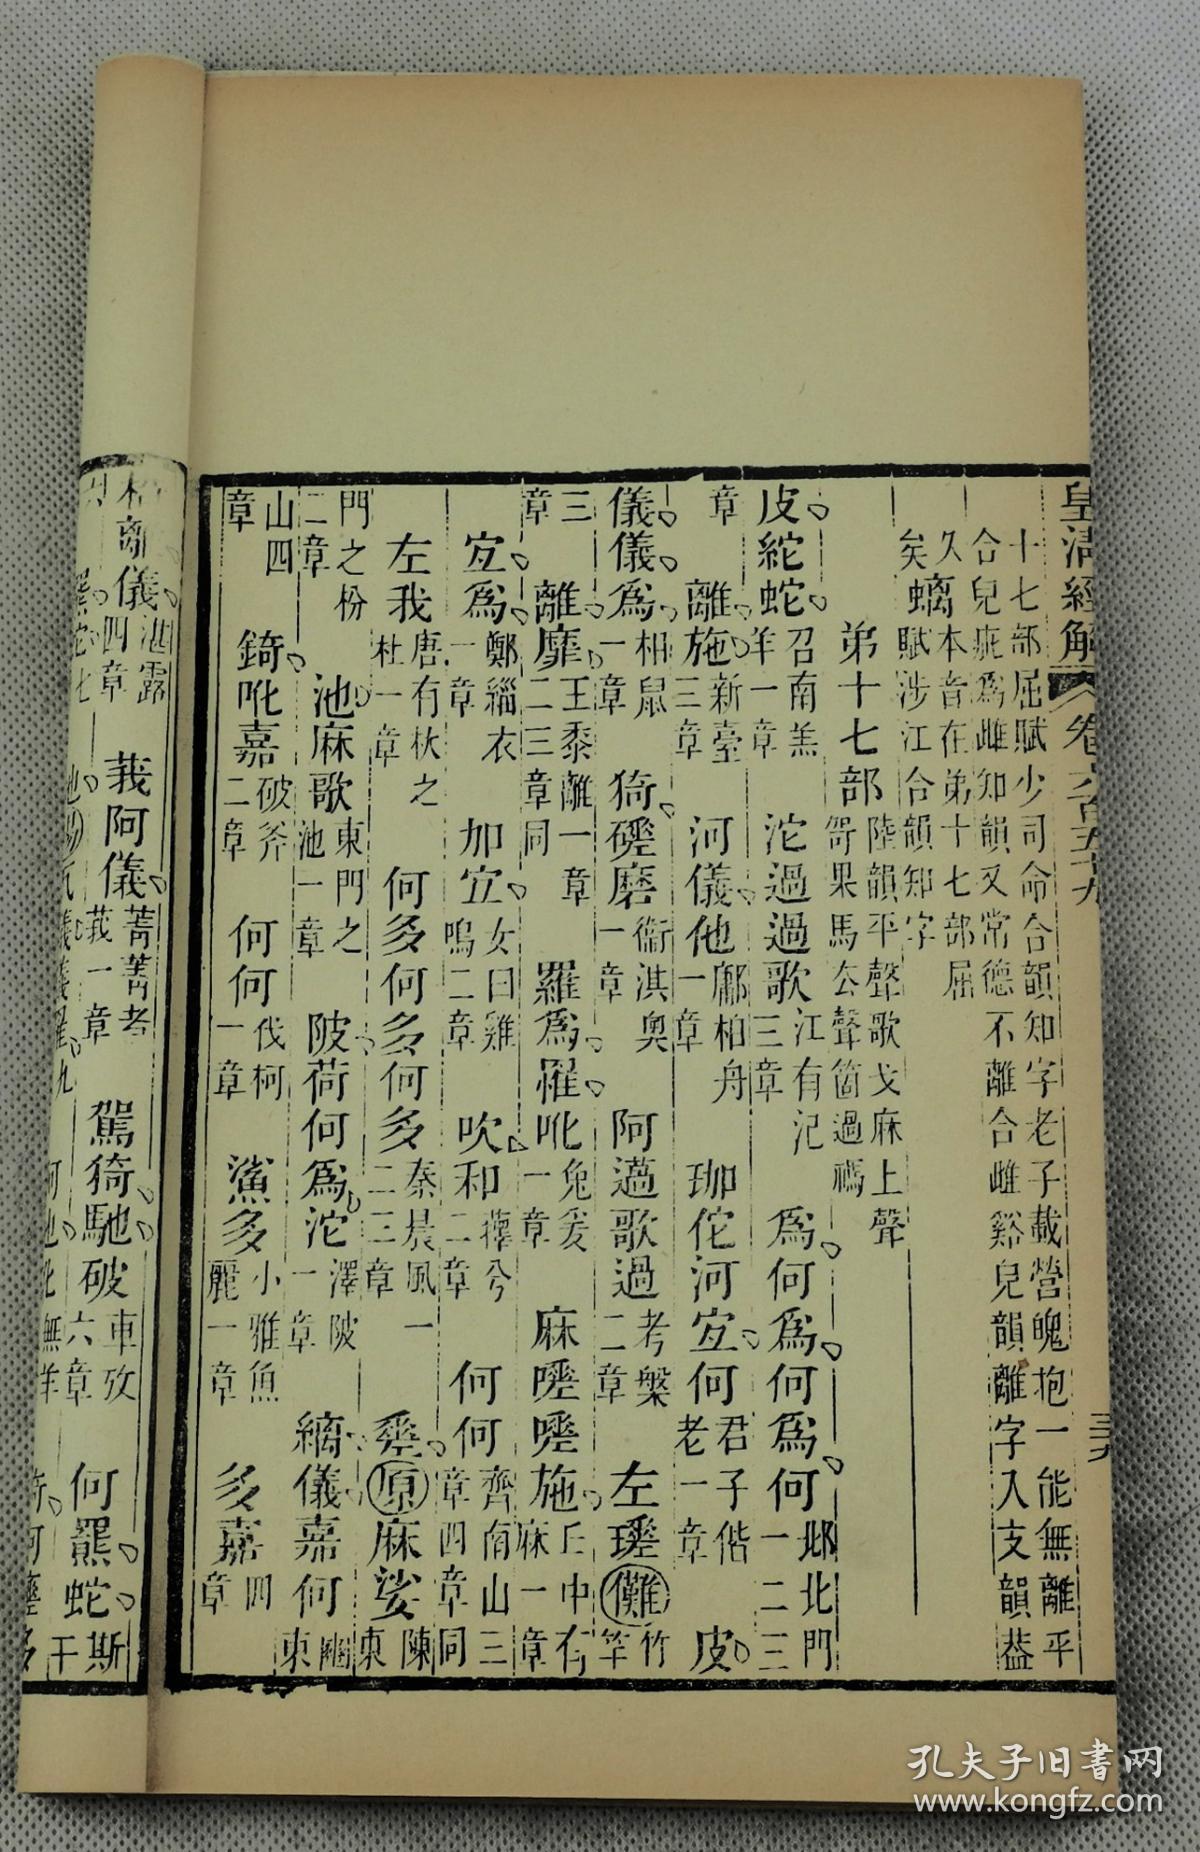 皇清經解 卷六百五十九 三十九
十七部屈賦少司命合韻知字老子載營魄抱一能無離平
合兒疵爲雌知韻又常德不離合雌谿兒韻離字入支韻葢
久 螭本音在弟十七部屈
矣 賦涉江合韻知字
弟十七部 陸韻平聲歌戈麻上聲哿果馬公聲箇過禡
皮紽蛇 召南羔羊一章 沱過過歌 江有汜三章 爲何爲何爲何 邶北門一二三
章 離施 新臺三章 河儀他 鄘柏舟一章 珈佗河宜何 君子偕老一章 皮
儀儀爲 相鼠一章 猗磋磨 衞淇奧一章 阿薖歌過 考槃二章 左瑳儺 竹竿
三章 離靡 王黍離一章二三章同 羅爲罹吪 兔爰一章 麻嗟嗟施 丘中有麻一章
宜爲 鄭緇衣一章 加宜 女曰雞鳴二章 吹和 蘀兮二章 何何 齊南山三章四章同
左我 唐有杕之杜一章 何多何多何多 秦晨風一二三章 差原麻娑 陳東
門之枌二章 池麻歌 東門之池一章 陂荷何爲沱 澤陂一章 縭儀嘉何 豳東
山四章 錡吪嘉 破斧二章 何何 伐柯一章 鯊多 小雅魚麗一章 多嘉 四章
離儀 湛露四章 莪阿儀 菁菁者莪一章 駕猗馳破 車攻六章 何羆蛇 斯干
孔夫子旧书网
www.kongfz.com